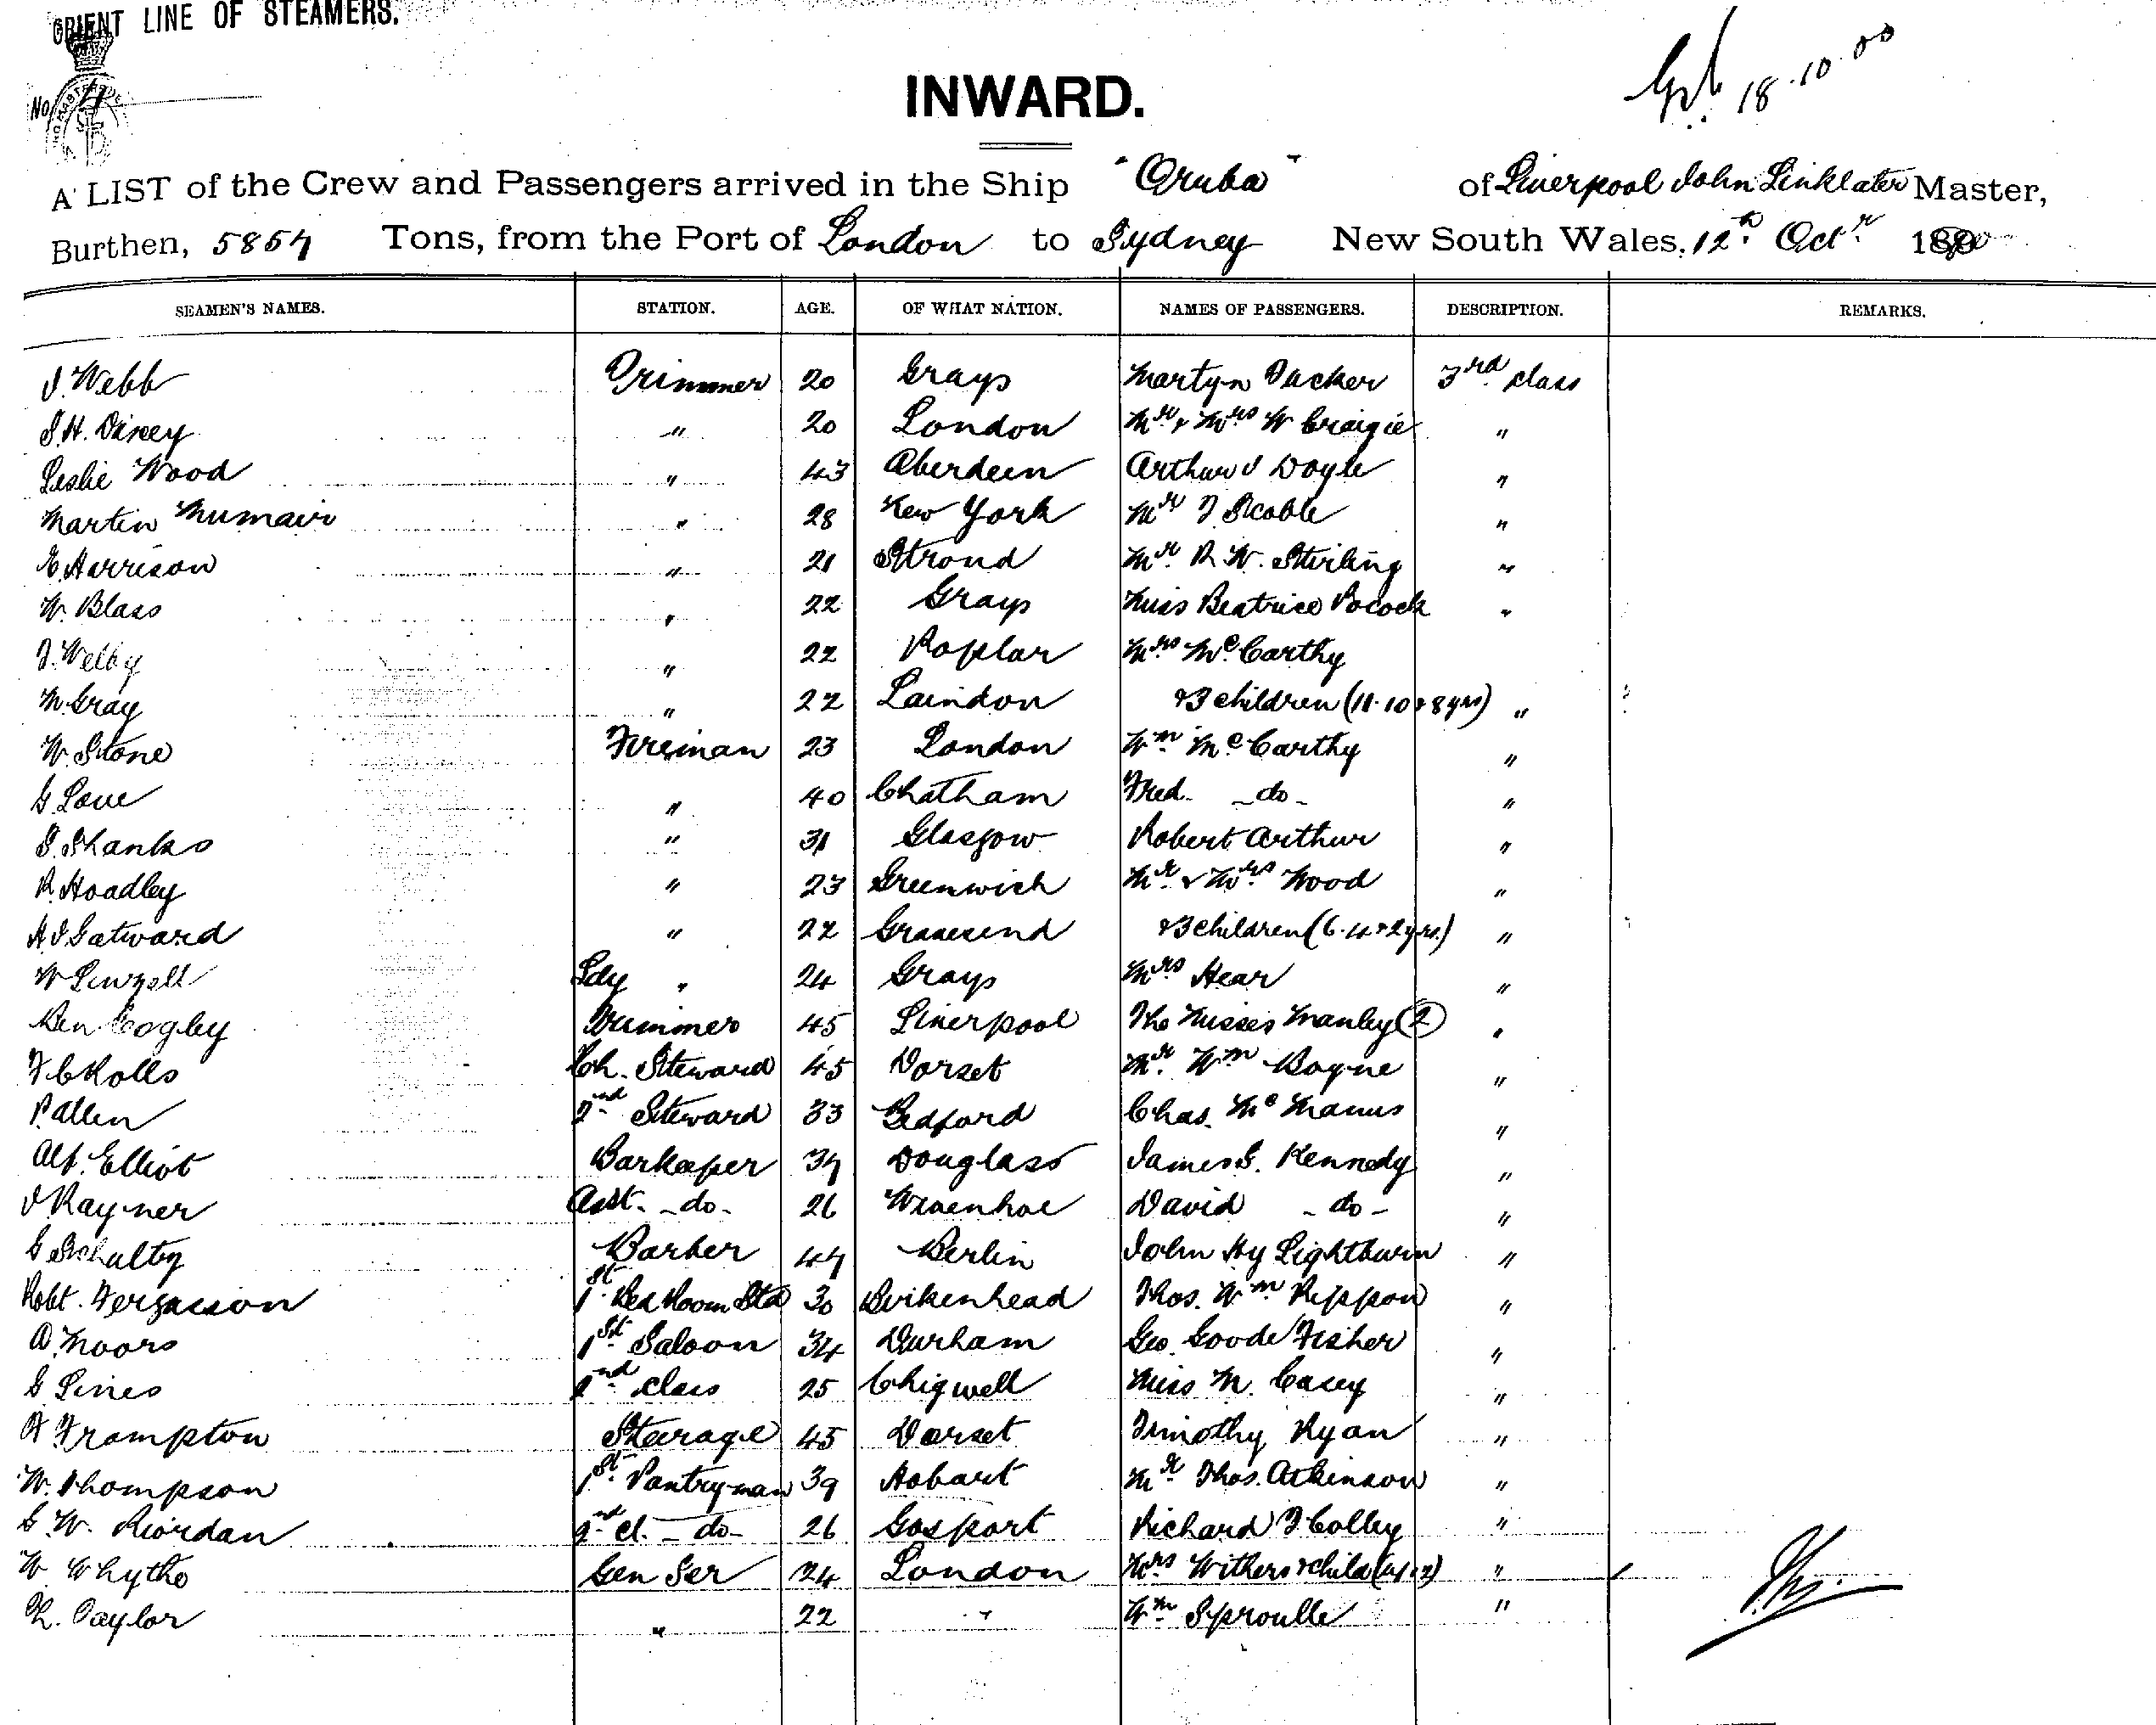 ORIENT LINE OF STEAMERS.
No. 4
INWARD.
18.10.00
A LIST of the Crew and Passengers arrived in the Ship "Oruba" of Liverpool John Linklater Master,
Burthen, 5857 Tons, from the Port of London to Sydney New South Wales, 12th Octr 1890
SEAMEN'S NAMES. STATION. AGE. OF WHAT NATION. NAMES OF PASSENGERS. DESCRIPTION. REMARKS.
J. Webb Trimmer 20 Grays Martyn Tucker 3rd class
S.H. " 20 London Mr & Mrs W Craigie "
Leslie Wood " 43 Aberdeen Arthur J Doyle "
Martin " 28 New York Mr J Scoble "
E. Harrison " 21 Strond Mr R. W. Stirling "
W. Blass " 22 Grays Miss Beatrice Pocock "
J. Welby " 22 Poplar Mrs McCarthy
M. Gray " 22 Laindon & 3 children (11.10 & 8 yrs) "
W. Stone Fireman 23 London Wm McCarthy "
G. Love " 40 Chatham Fred. -do- "
S. Shanks " 31 Glasgow Robert Arthur "
R. Hoadley " 23 Greenwich Mr & Mrs Wood "
A J Gatward " 22 Gravesend & 3 children (6.4 & 2 yrs.) "
W Ldy " 24 Grays Mrs Hear "
Ben Cogley Trimmer 45 Liverpool The Misses Manley (2) "
F C Rolls Ch. Steward 45 Dorset Mr. Wm Boyne "
P. Allen 2nd Steward 33 Bedford Chas. McManus "
Alf. Elliot Barkeeper 37 Douglass James S. Kennedy "
J Rayner Asst. -do- 26 Wivenhoe David -do- "
G Schultz Barber 47 Berlin John Hy Lightburn "
Robt. Fergusson 1st Bed Room Std 30 Birkenhead Thos. Wm Rippon "
A. Moors 1st Saloon 34 Durham Geo. Goode Fisher "
G Lines 2nd Class 25 Chigwell Miss M. Casey "
F Frampton Steerage 45 Dorset Timothy Ryan "
W. Thompson 1st Pantryman 39 Hobart Mr Thos. Atkinson "
G. W. Riordan 2nd cl. -do- 26 Gosport Richard J Colley "
W Whytho Gen Ser 24 London Mrs Withers & child "
R. Taylor " 22 " Wm Sproulle "